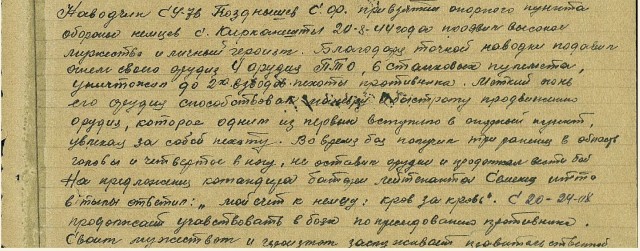 Наводчик СУ-76 Позднышев С ор. при взятии опорного пункта
обороны немцев с. Киркоешты 20-8-44 года проявил высокое
мужество и личный героизм. Благодаря точной наводки подавил
огнем своего орудия 4 орудия ПТО, 6 станковых пулемета,
уничтожил до 2х взводов пехоты противника. Меткий огонь
его орудия способствовал быстрому продвижению
орудия, которое одним из первых вступило в опорный пункт,
увлекая за собой пехоту. Во время боя получил три ранения в область
головы и четвертое в ногу, не оставил орудия и продолжал вести бой
На предложения командира батареи лейтенанта итти
в тылы ответил: "мой счет к немцу: кровь за кровь". С 20-24-
продолжает учавствовать в боях по преследованию противника
Своим мужеством и героизмом заслуживает правительственной